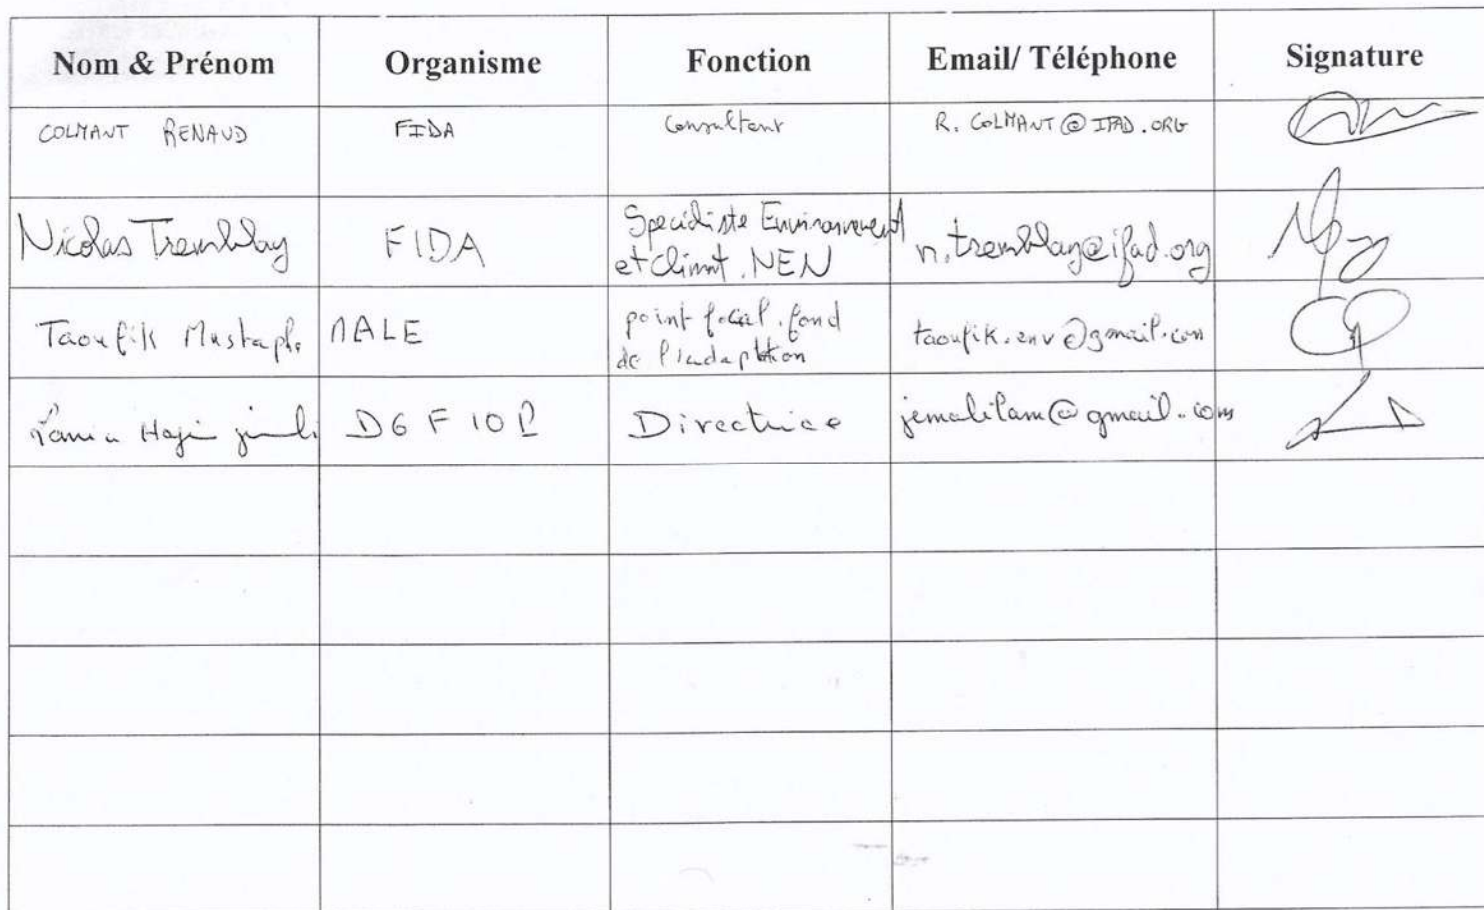 Nom & Prénom Organisme Fonction Email/ Téléphone Signature
COLMANT RENAUD FIDA Consultant R. COLMANT@IFAD.ORG
Nicolas Tremblay FIDA Spécialiste Environnement
et Climat. NEN n.tremblay@ifad.org
Taoufik Mustapha MALE point focal. fond
de l'adaptation taoufik.env@gmail.com
Lamia Hagi DGFIOP Directrice jemalilam@gmail.com